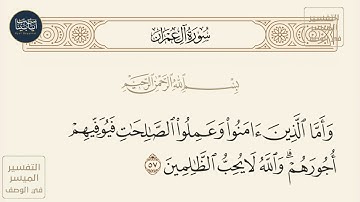 التفسير
الميسر
في الوصف
سُورَةُ آلِ عِمْرَان
بِسْمِ اللَّهِ الرَّحْمَٰنِ الرَّحِيمِ
وَأَمَّا الَّذِينَ ءَامَنُوا۟ وَعَمِلُوا۟ الصَّـٰلِحَـٰتِ فَيُوَفِّيهِمْ
أُجُورَهُمْ ۗ وَاللَّهُ لَا يُحِبُّ الظَّـٰلِمِينَ ٥٧
التفسير
الميسر
في الوصف